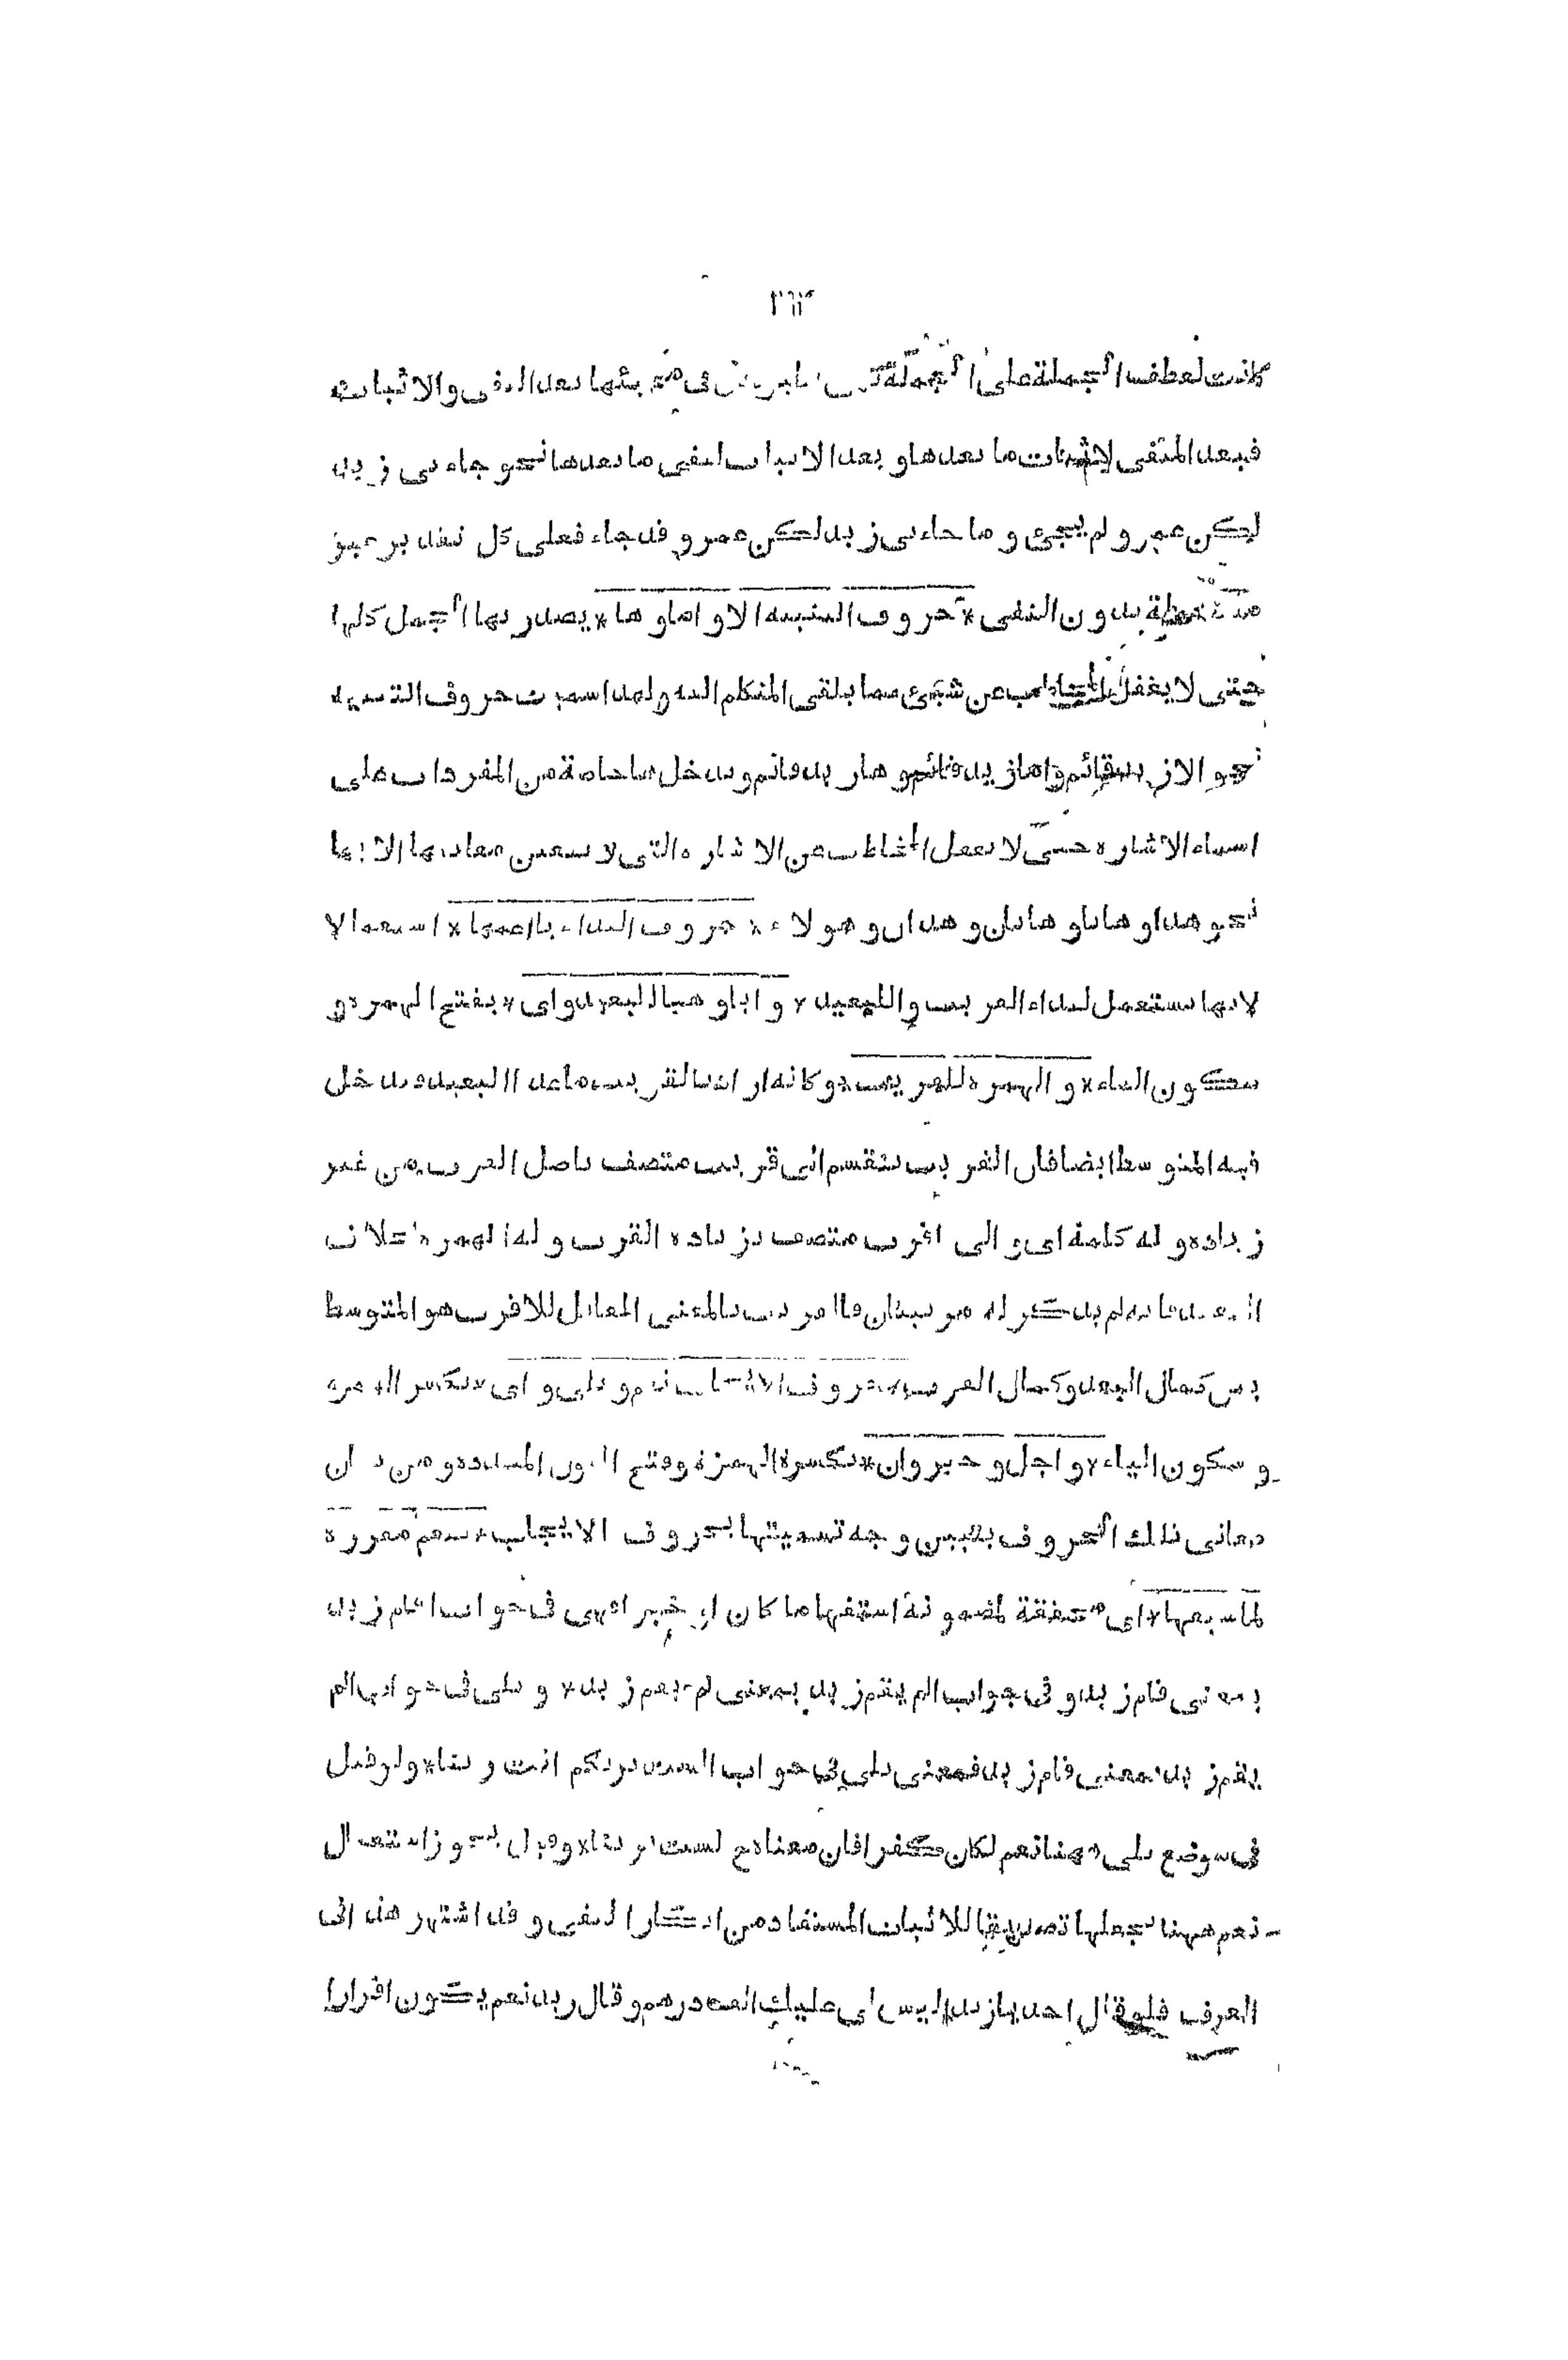 كانت لعطف الجملة على الجملة فهي نظيرة بل في مجيئها بعد النفي والاثبات
فبعد النفي لاثبات ما بعدها وبعد الاثبات لنفي ما بعدها نحو جاءني زيد
لكن عمرو لم يجئ وما جاءني زيد لكن عمرو قد جاء فعلى كل تقدير غير
بدون النفي * حروف التنبيه الا واما وها * يصدر بها الجمل كلها
حتى لا يغفل المخاطب عن شيئ مما يلقي المتكلم اليه ولهذا سميت حروف التنبيه
نحو الا زيد قائم واما زيد قائم وها زيد قائم وتدخل ها خاصة من المفردات على
اسماء الاشاره حتى لا يغفل المخاطب عن الاشاره التي لا يتعين معانيها الا بها
نحو هذا وهاتا وهاتان وهذان وهولاء * حروف النداء يا اعمها * استعمالا
لانها تستعمل لنداء القريب والبعيد * وايا وهيا للبعيد واى * بفتح الهمزه و
سكون الياء * والهمزه للقريب * وكانه اراد بالقريب ما عدا البعيد فيدخل
فيه المتوسط ايضا فان القريب ينقسم الى قريب متصف باصل القرب من غير
زياده وله كلمة اى والى اقرب متصف بزياده القرب وله الهمزه بخلاف
البعيد فانه لم يذكر له مرتبتان فالقريب بالمعنى المقابل للاقرب هو المتوسط
بين كمال البعد وكمال القرب * حروف الايجاب نعم وبلى واى * بكسر الهمزه
وسكون الياء * واجل وجير وان * بكسرة الهمزة وفتح النون المشدده ومن بيان
معاني تلك الحروف يتبين وجه تسميتها بحروف الايجاب * فنعم مقررة
لما سبقها * اى محققة لمضمونه استفهاما كان او خبرا فهي في جواب اقام زيد
بمعنى قام زيد وفي جواب الم يقم زيد بمعنى لم يقم زيد * وبلى في جواب الم
يقم زيد بمعنى قام زيد فمعنى بلى في جواب الست بربكم انت ربنا * ولو قيل
في موضع بلى ههنا نعم لكان كفرا فان معناه ح لست بربنا * وقيل يجوز استعمال
نعم ههنا بجعلها تصديقا للاثبات المستفاد من انكار النفي وقد اشتهر هذا في
العرف فلو قال احد يا زيد اليس لي عليك الف درهم وقال زيد نعم يكون اقرارا